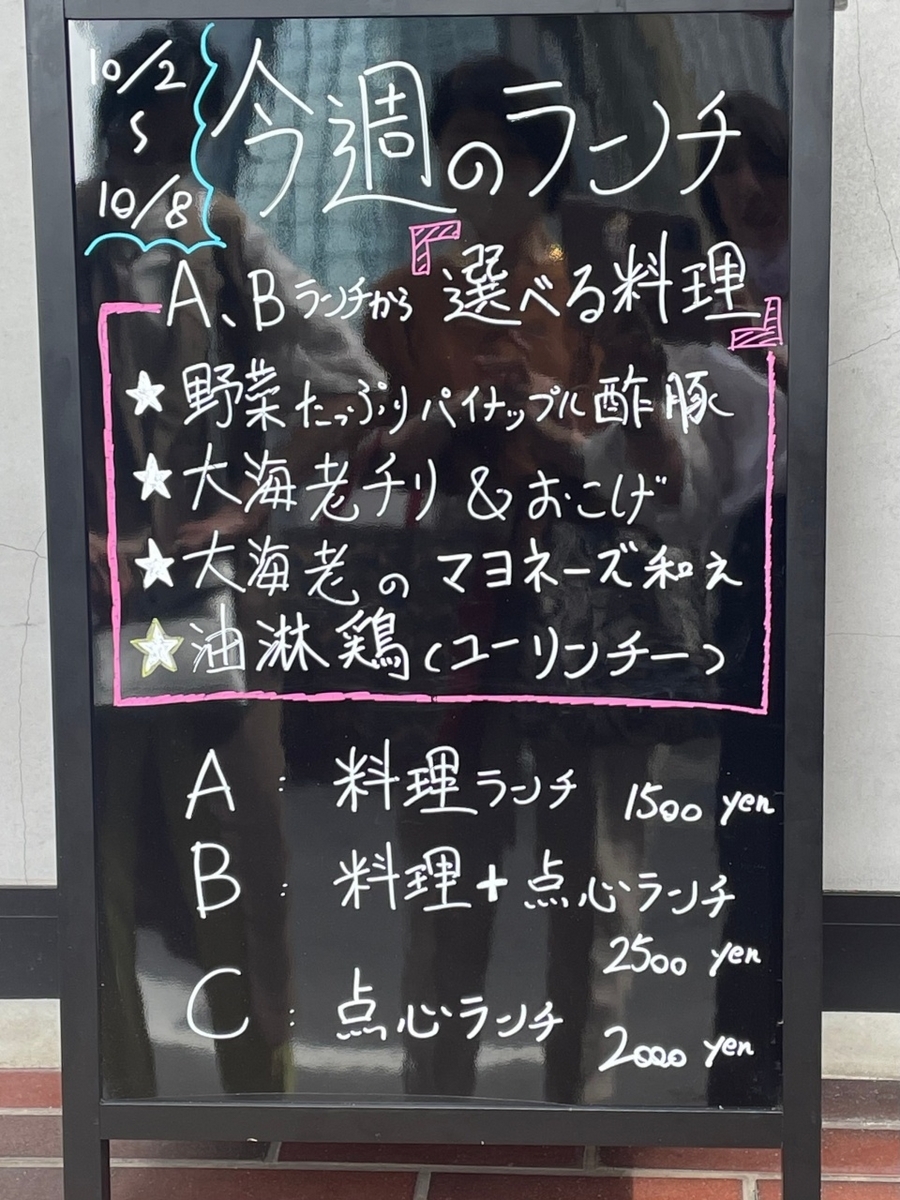 10/2
〜
10/8
今週のランチ
A、Bランチから「選べる料理」
★野菜たっぷりパイナップル酢豚
★大海老チリ&おこげ
★大海老のマヨネーズ和え
★油淋鶏(ユーリンチー)
A:料理ランチ 1500 yen
B:料理+点心ランチ
2500 yen
C:点心ランチ
2000 yen